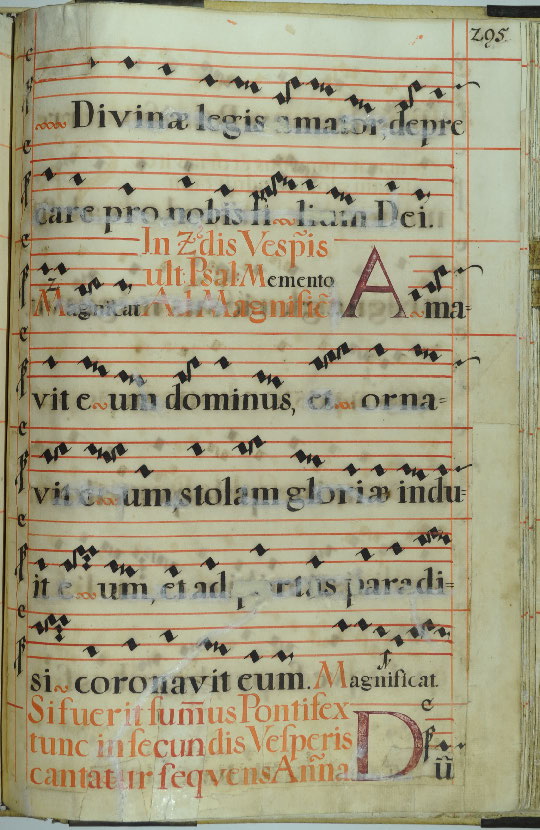 295.
Divinæ legis amator, depre
care pro nobis filium Dei.
In 2.dis Vesp̃is
ult. Psal. Memento
Magnificat Ad Magnific̃ A ma=
vit eum dominus, et orna=
vit eum, stolam gloriæ indu=
it eum, et ad portas paradi=
si coronavit eum. Magnificat.
Si fuerit sum̃us Pontifex
tunc in secundis Vesperis
cantatur seqvens Añna D ũ